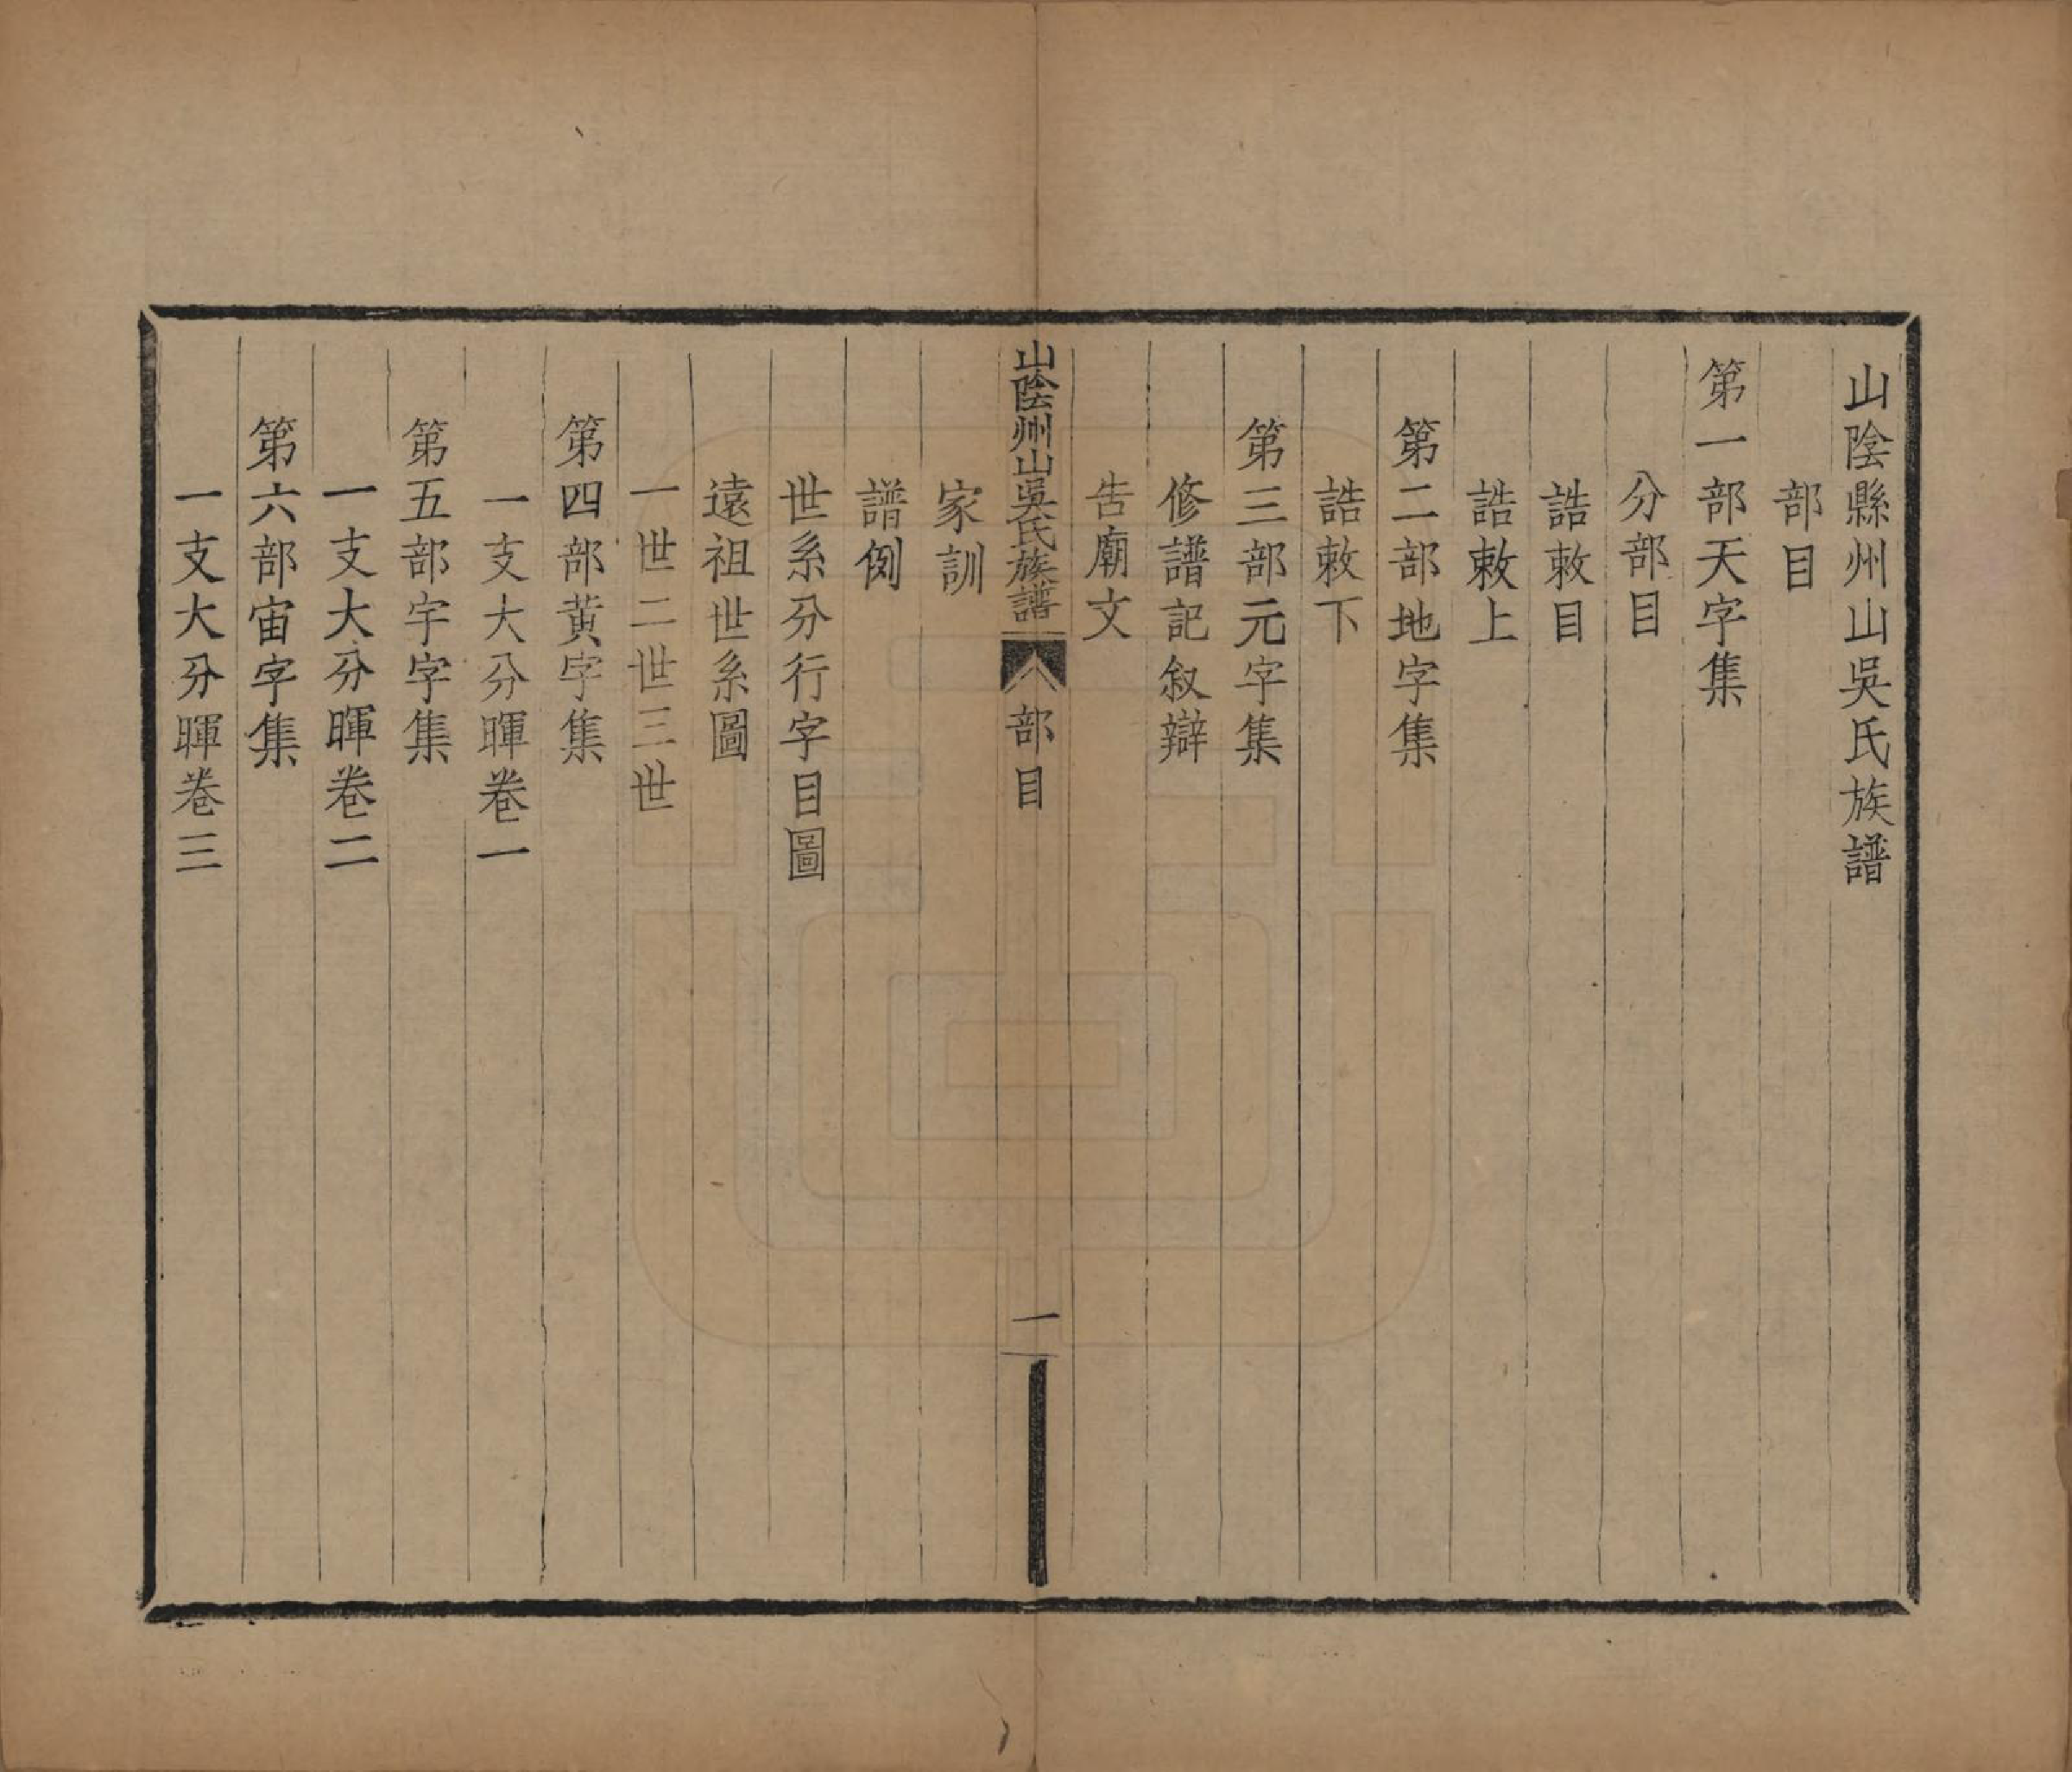 山陰縣州山吳氏族譜
部目
第一部天字集
分部目
誥敕目
誥敕上
第二部地字集
誥敕下
第三部元字集
修譜記叙辯
告廟文
山陰州山吳氏族譜 部目 一
家訓
譜例
世系分行字目圖
遠祖世系圖
一世二世三世
第四部黃字集
一支大分暉卷一
第五部宇字集
一支大分暉卷二
第六部宙字集
一支大分暉卷三